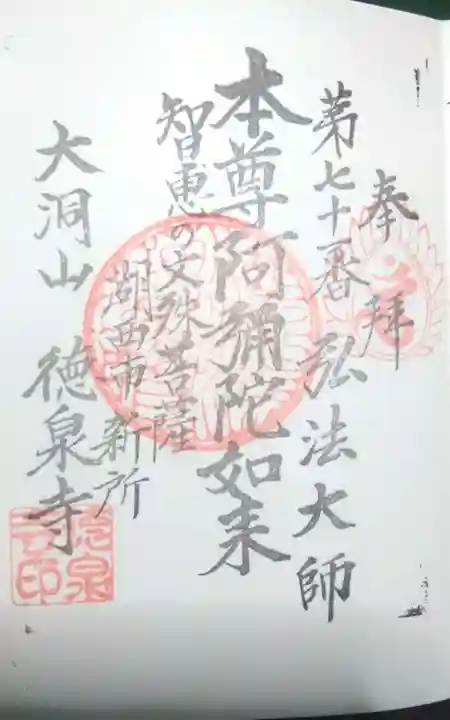 奉拝
第七十番 弘法大師
本尊阿彌陀如来
智恵の文殊菩薩
湖西市新所
大洞山 徳泉寺